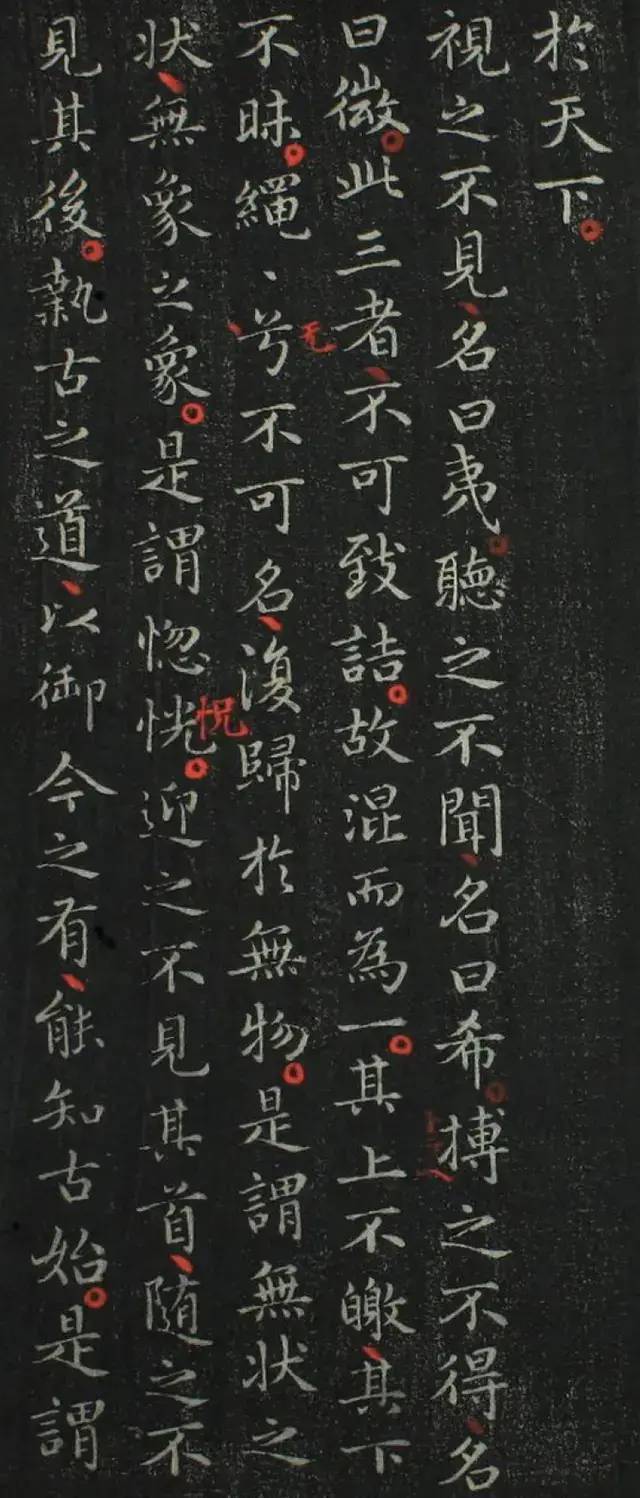 於天下。
視之不見、名曰夷。聽之不聞、名曰希。搏之不得、名
曰微。此三者、不可致詰。故混而為一。其上不皦、其下
不昧。繩〻兮不可名、復歸於無物。是謂無状之
状、無象之象。是謂惚恍。迎之不見其首、隨之不
見其後。執古之道、以御今之有、能知古始。是謂
无
怳